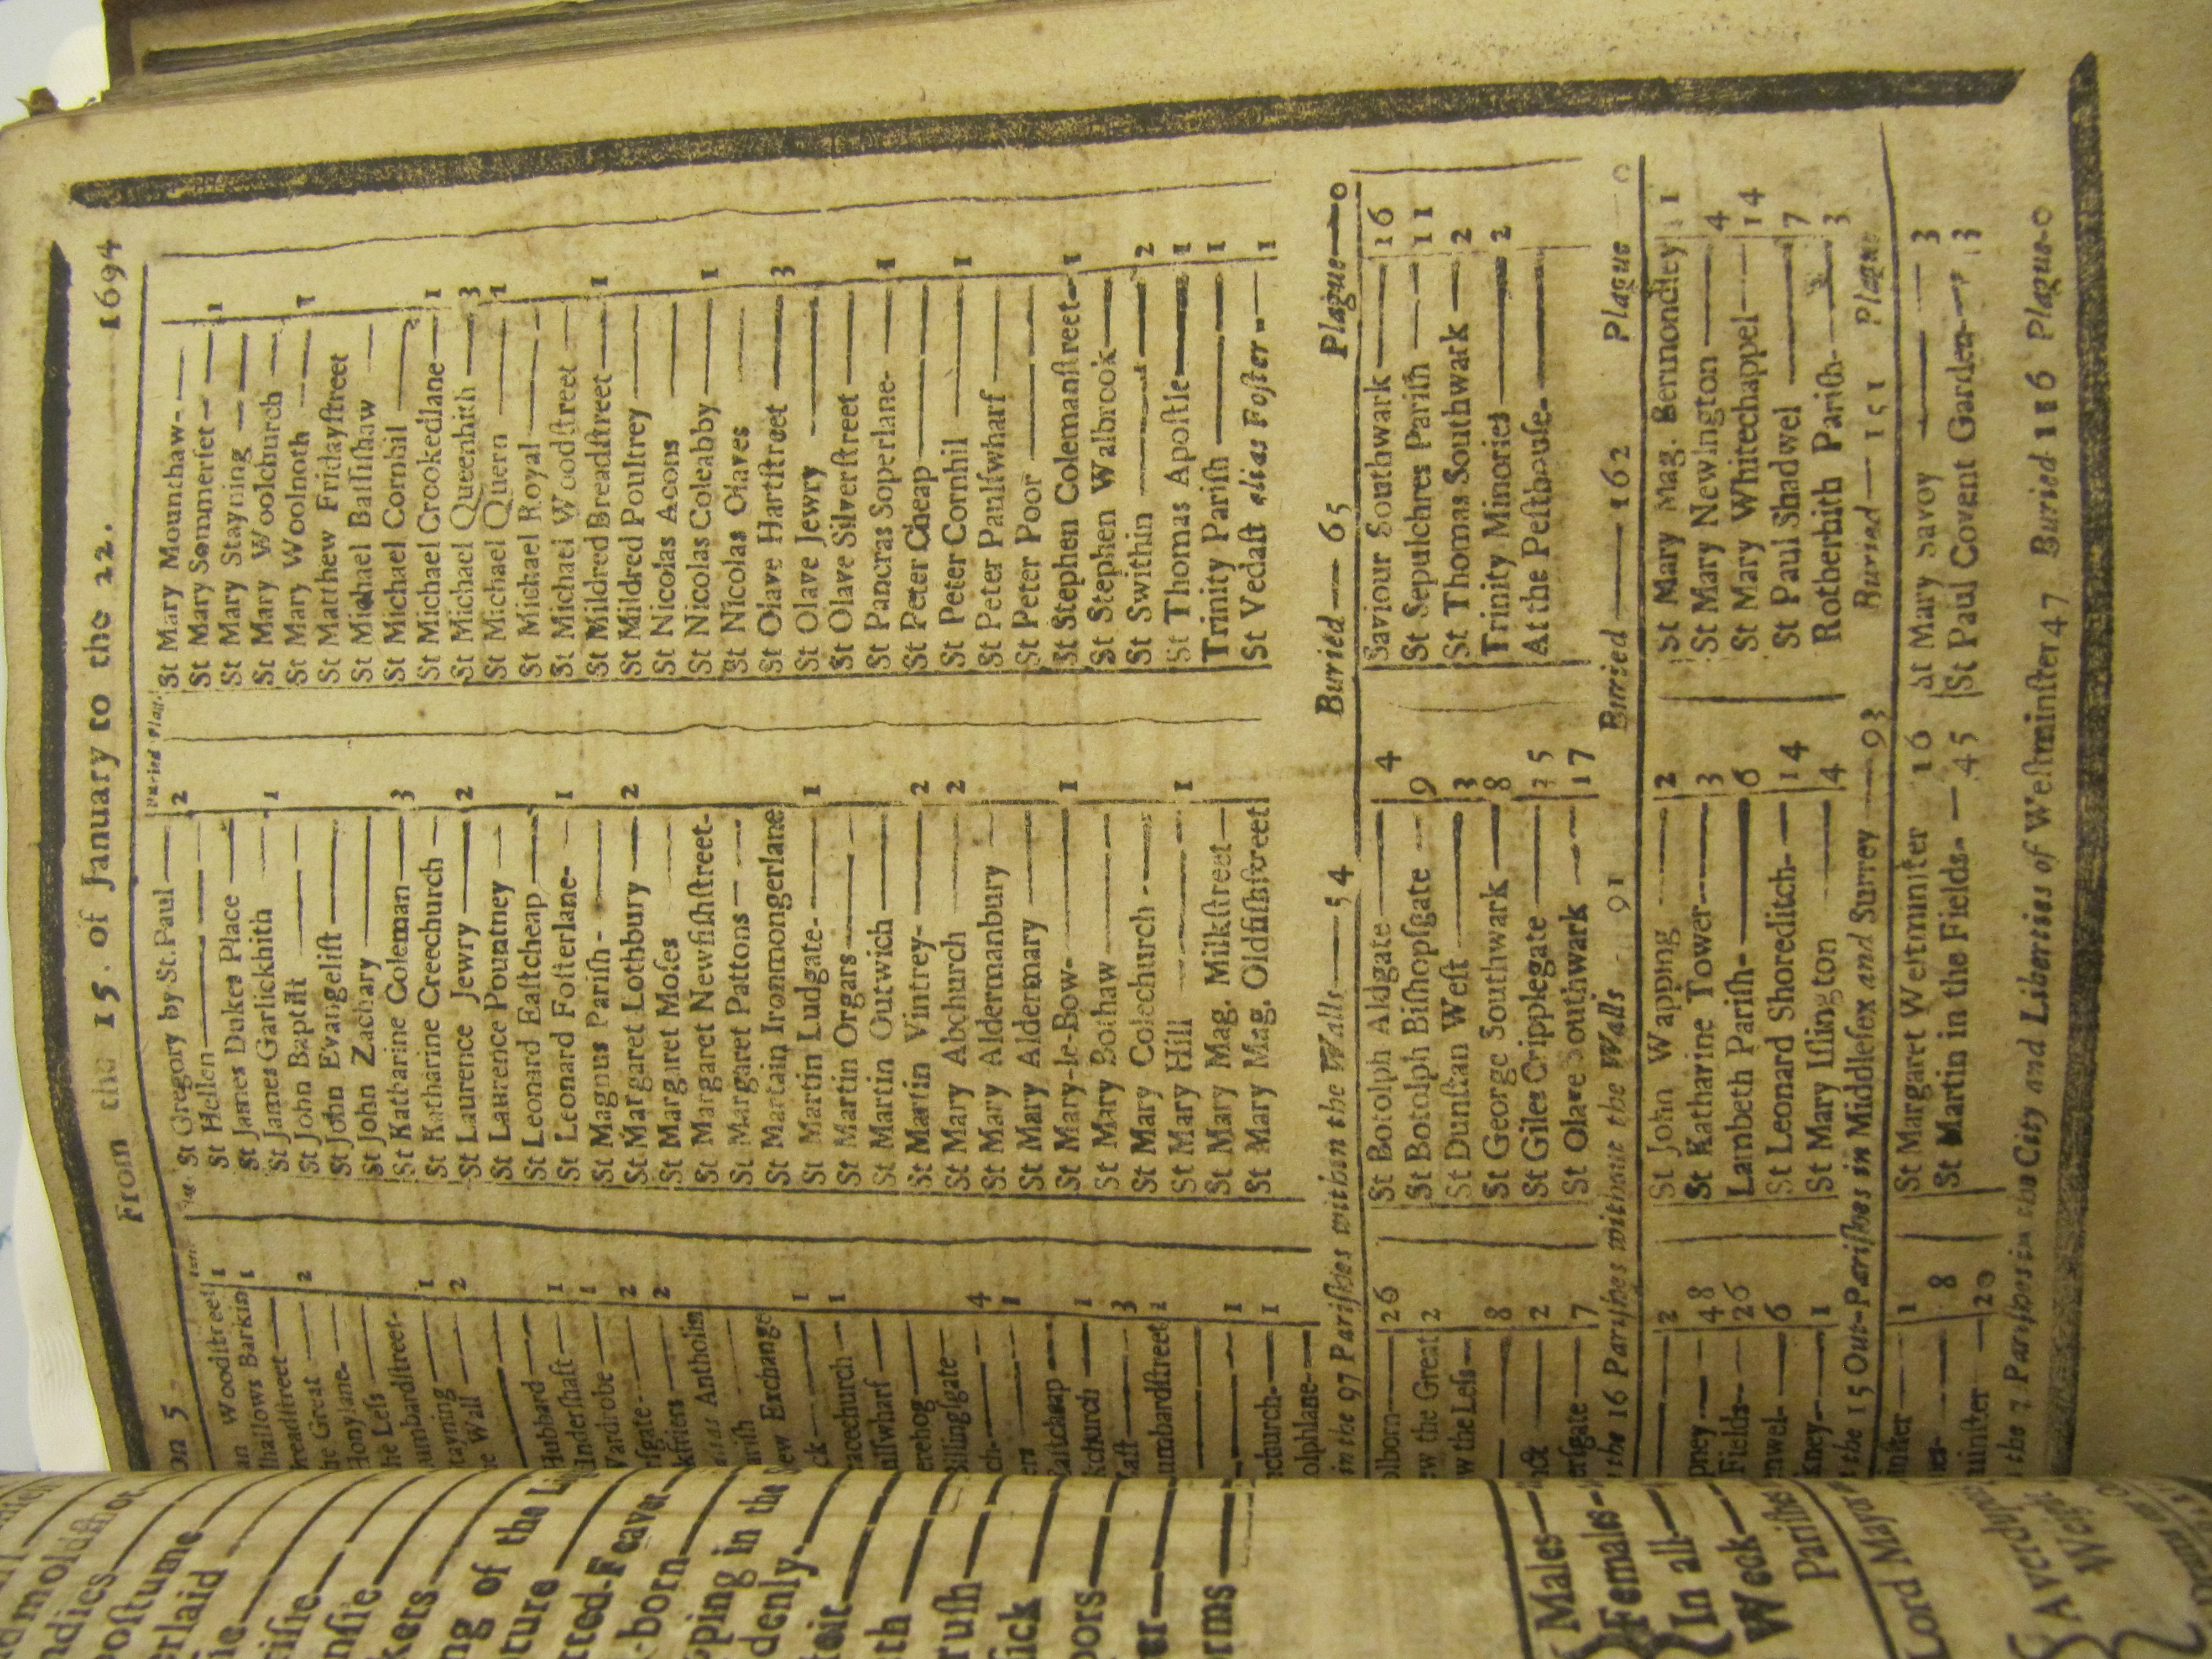 From the 15. of January to the 22. 1694
on 5
Buried Plag.
Woodſtreet 1
lhallows Barkin 1
hreadſtreet — 2
he Great —
Honylane- —
he Leſs —
umbardſtreet-
tayning — 1
e Wall — 2
Hubbard — 1
Inderſhaft — 1
Vardrobe — 2
rſgate- — 2
kfriers —
alias Antholin
ariſh —
ew Exchange
ck — 1
racechurch — 1
ulſwharf —
erebog —
illingſgate —
ch- — 4
ers — 1
aſtcheap —
kchurch — 1
Eaſt — 3
umbardſtreet 1
— 1
nchurch- — 1
olphlane- —
St Gregory by St. Paul — 2
St Hellen —
St James Dukes Place —
St James Garlickhith — 1
St John Baptiſt —
St John Evangeliſt —
St John Zachary —
St Katharine Coleman — 3
St Katharine Creechurch —
St Laurence Jewry — 2
St Laurence Pountney —
St Leonard Eaſtcheap —
St Leonard Foſterlane- — 1
St Magnus Pariſh - —
St Margaret Lothbury — 2
St Margaret Moſes
St Margaret Newfiſhſtreet-
St Margaret Pattons —
St Martain Ironmongerlane
St Martin Ludgate- — 1
St Martin Orgars —
St Martin Outwich —
St Martin Vintrey- — 2
St Mary Abchurch — 2
St Mary Aldermanbury —
St Mary Aldermary —
St Mary-le-Bow- — 1
St Mary Bothaw —
St Mary Colechurch - —
St Mary Hill — 1
St Mary Mag. Milkſtreet —
St Mary Mag. Oldfiſhſtreet
St Mary Mounthaw- —
St Mary Sommerſet - — 1
St Mary Stayning —
St Mary Woolchurch —
St Mary Woolnoth — 1
St Matthew Fridayſtreet
St Michael Baſſiſhaw —
St Michael Cornhil —
St Michael Crookedlane — 1
St Michael Queenhith — 3
St Michael Quern — 1
St Michael Royal —
St Michael Woodſtreet —
St Mildred Breadſtreet — 1
St Mildred Poultrey —
St Nicolas Acons —
St Nicolas Coleabby — 1
St Nicolas Olaves —
St Olave Hartſtreet — 3
St Olave Jewry —
St Olave Silverſtreet —
St Pancras Soperlane- — 1
St Peter Cheap —
St Peter Cornhil — 1
St Peter Paulſwharf —
St Peter Poor —
St Stephen Colemanſtreet- 1
St Stephen Walbrook —
St Swithin — 2
St Thomas Apoſtle — 1
Trinity Pariſh — 1
St Vedaſt alias Foſter - — 1
in the 97 Pariſhes within the Walls — 54 Buried — 65 Plague — 0
olborn — 26
ew the Great 2
w the Leſs —
— 8
— 2
erſgate — 7
St Botolph Aldgate — 4
St Botolph Biſhopſgate — 9
St Dunſtan Weſt — 3
St George Southwark — 8
St Giles Cripplegate — 25
St Olave Southwark — 17
Saviour Southwark — 16
St Sepulchres Pariſh — 11
St Thomas Southwark — 2
Trinity Minories — 2
At the Peſthouſe- —
the 16 Pariſhes without the Walls 91 Buried — 162 Plague 0
— 2
pney — 48
Fields- — 26
nwel- — 6
kney — 1
St John Wapping — 2
St Katharine Tower — 3
Lambeth Pariſh- — 6
St Leonard Shoreditch- — 14
St Mary Iſlington — 4
St Mary Mag. Bermondſey 11
St Mary Newington — 4
St Mary Whitechappel — 14
St Paul Shadwel — 7
Rotherhith Pariſh- — 3
the 15 Out-Pariſhes in Middleſex and Surrey — 93 Buried — 151 Plague
inſter — 1
— 8
minſter — 20
St Margaret Weſtminſter 16
St Martin in the Fields- — 45
St Mary Savoy — 3
St Paul Covent Garden — 3
the 7 Pariſhes in the City and Liberties of Weſtminſter 47 Buried 116 Plague-0
ndies
poſtume
erlaid
riſie
kers
ng of the
ture
tted-Feaver
-born
pping in the
denly
th
ruſh
ick
oors
er
rms
Males
Females
In all
Week
Pariſhe
Lord Mayor
Averdupois